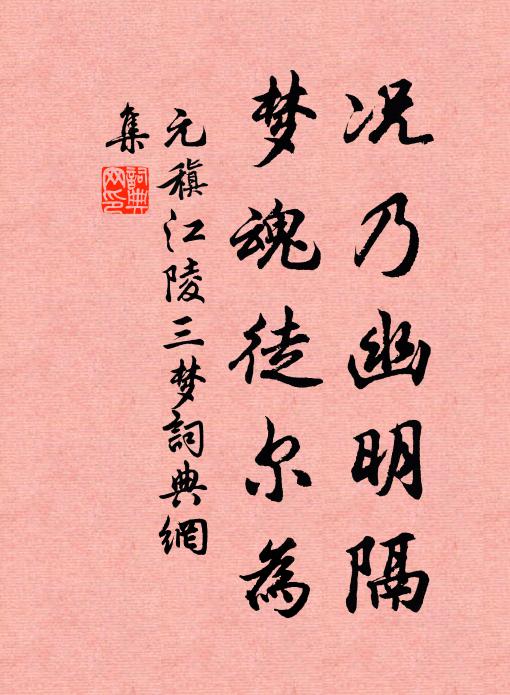 况乃幽明隔
梦魂徒尔为
元稹江陵三梦詞典網
集
詞典网印